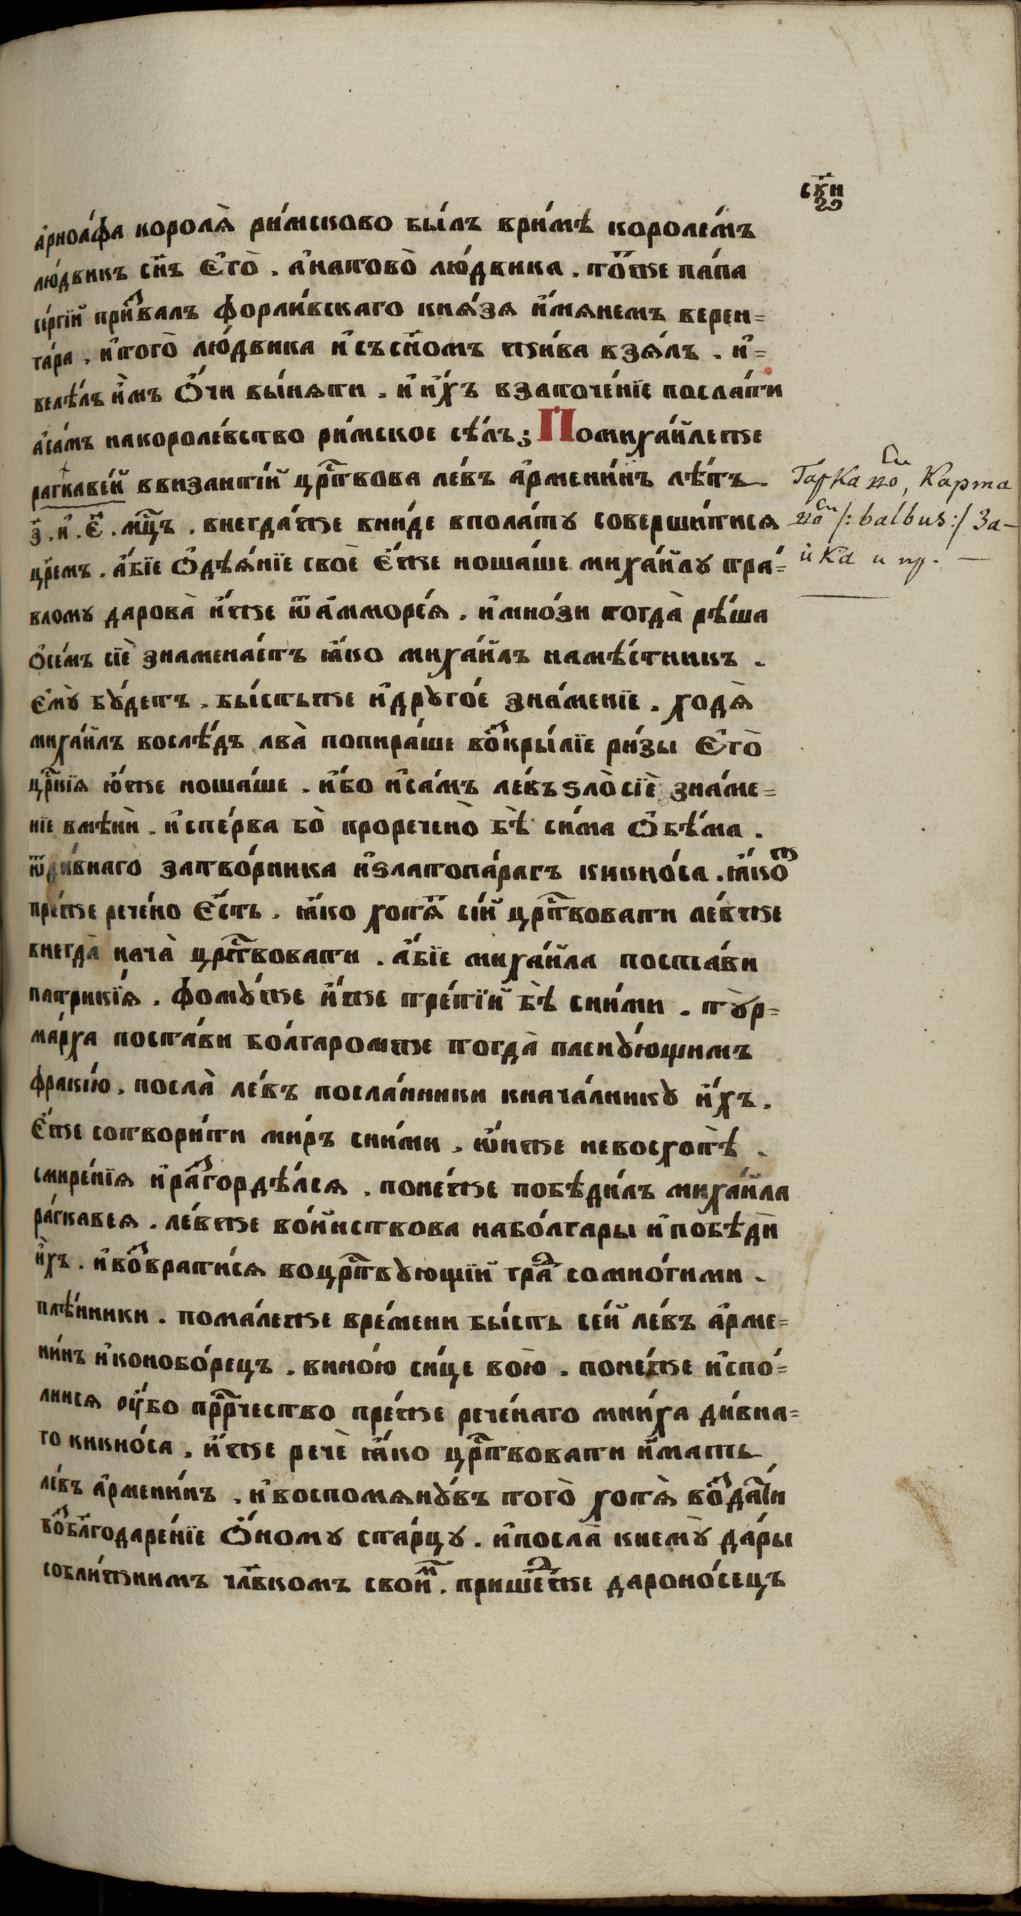 арноа́фа королѧ̀ ри́мсково бы́лъ ври́мѣ короле́мъ
лю́двикъ сн҃ъ є҆го̀ . а҆натово̀ лю́двика . то́же папа
се́ргїй призвалъ форли́вскаго кнѧ́зѧ и҆́мѧнемъ берен=
га́ра . и҆того̀ лю́двика и҆съсн҃омъ жи́ва взѧ́лъ . и҆=
велѣ́лъ и҆̀мъ ѻ҆́чи вы́нѧти . и҆ и҆́хъ взаточе́нїе посла́ти
а҆са́мъ накороле́вство ри́мское сѣ́лъ ; Помиха́йлеже
рагкаве́й ввизанті́й црⷭ҇твова ле́въ а҆рмени́нъ лѣ́тъ
з҃ . и҆ . є҃ . мцⷭ҇ъ . внегда́же вни́де вполату соверши́тисѧ
цр҃е́мъ . а҆́бїе ѻ҆дѣѧ́нїе своѐ є҆́же ноша́ше миха́йлу тра́=
вломꙋ дарова̀ и҆́же ѿа҆мморе́ѧ . и҆мно́зи тогда̀ рѣ́ша
ѻ҆се́мъ сїѐ знамена́етъ ꙗ҆́ко миха́йлъ намѣ́стникъ .
є҆мꙋ̀ бꙋ́детъ . бы́стьже и҆дрꙋго́е зна́менїе . ходѧ̀
миха́йлъ вослѣ́дъ лва̀ попира́ше воскры́лїе ри́зы є҆го̀
црⷭ҇кїѧ ю҆́же ноша́ше . и҆́бо и҆са́мъ ле́въ ѕло̀ сїѐ зна́ме=
нїе вмѣнѝ . и҆спе́рва бо̀ проречено̀ бѣ̀ си́ма ѻ҆бѣ́ма .
ѿди́внаго затво́рника и҆златопа́рагъ кикно́са . ꙗ҆́кож
пре́же рече́но є҆́сть . ꙗ҆́ко хотѧ̀ сі́й црⷭ҇твовати ле́вже
внегда̀ нача̀ црⷭ҇твовати . а҆́бїе миха́йла поста́ви
патрикі́ѧ . фомꙋ́же и҆́же тре́тїй бѣ̀ сни́ми . тꙋ̀р=
ма́рха поста́ви бо́лгаромже тогда̀ плѣнꙋ́ющимъ
фракі́ю . посла̀ ле́въ посла́нники кнача́лникꙋ и҆́хъ .
є҆́же сотвори́ти ми́ръ сни́ми . ѻ҆́ниже невосхотѣ̀ .
смире́нїѧ и҆разгордѣ́лсѧ . поне́же побѣди́лъ миха́йла
ра́гкавеѧ . ле́вже во́йиствова набо́лгары и҆побѣди
и҆̀хъ . и҆возврати́сѧ воцрⷭ҇твꙋющїй гра́д сомно́гими .
плѣ́нники . пома́леже вре́мени бы́сть се́й ле́въ а҆рме=
ни́нъ и҆конобо́рецъ . вино́ю си́це во́ю . поне́же и҆спо́=
лнисѧ ᲂу҆́бо прⷪ҇ро́чество пре́же рече́наго мни́ха ди́вна=
го кикно́са . и҆́же речѐ ꙗ҆́ко црⷭ҇твовати и҆́мать
ле́въ а҆рмени́нъ . и҆воспомѧнꙋ́въ того̀ хотѧ̀ возда́ти
воблⷢ҇одаре́нїе ѻ҆́номꙋ ста́рцꙋ . и҆посла̀ кнемꙋ̀ да́ры
собли́жнимъ чл҃вкомъ свои́м . прише́дже дароно́сецъ
Гарка*но*си, Карта
*но*си /: balbus :/ За-
ика и пр. —